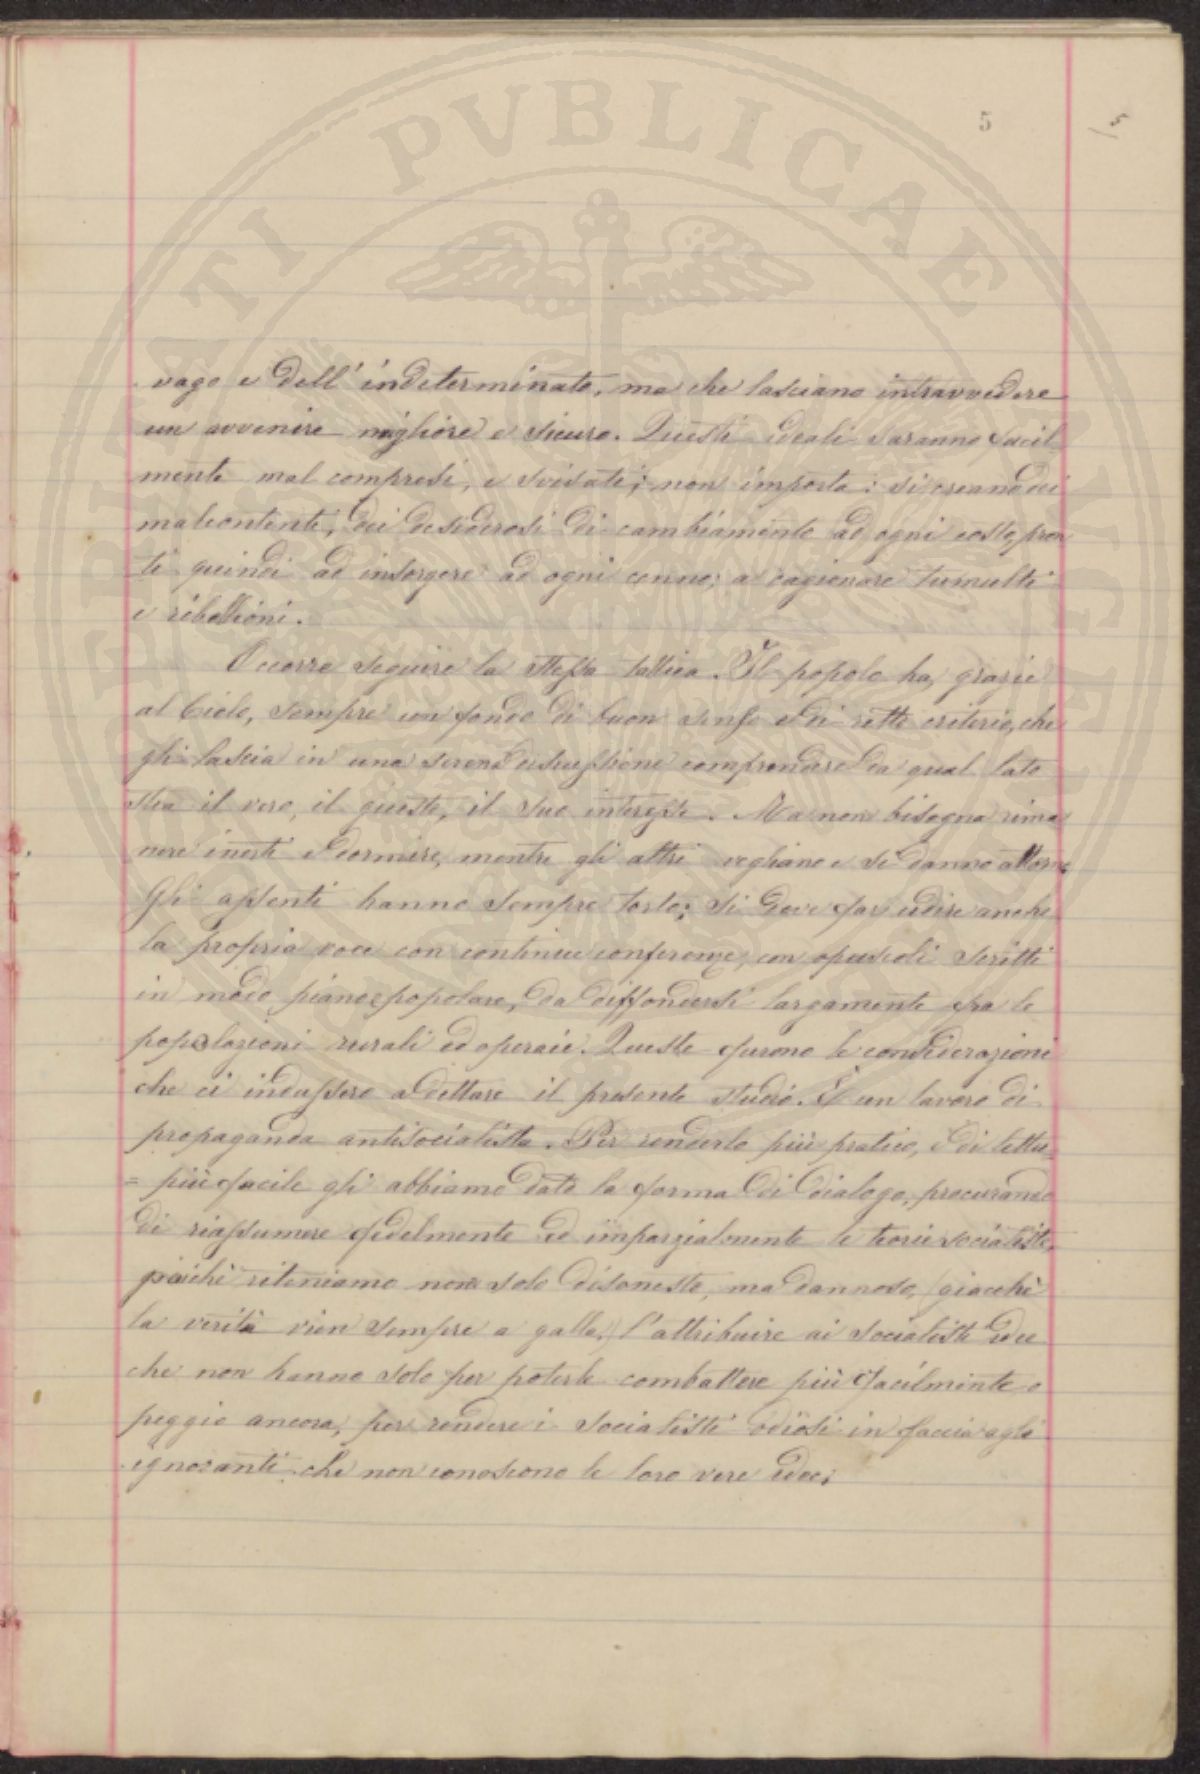 PVBLICAE
5
5
vago e dell' indeterminato, ma che lasciano intravvedere
un avvenire migliore e sicuro. Questi ideali saranno facil
mente mal compresi, e svisati; non importa: si creano dei
malcontenti, dei desiderosi di cambiamento ad ogni costo, pron
ti quindi ad insorgere ad ogni cenno; a cagionare tumulti
e ribellioni.
Occorre seguire la stessa tattica. Il popolo ha, grazie
al Cielo, sempre un fondo di buon senso e di retto criterio, che
gli lascia in una serena discussione comprendere da qual lato
stia il vero, il giusto, il suo interesse. Ma non bisogna rima
nere inerti e dormire, mentre gli altri vegliano e si danno attorno
Gli assenti hanno sempre torto; si deve far udire anche
la propria voce con continue conferenze, con opuscoli scritti
in modo piano e popolare, da diffondersi largamente fra le
popolazioni rurali ed operaie. Queste furono le considerazioni
che ci indussero a dettare il presente studio. È un lavoro di
propaganda antisocialista. Per renderlo più pratico, e di lettu
= più facile gli abbiamo dato la forma di dialogo, procurando
di riassumere fedelmente ed imparzialmente le teorie socialiste,
poichè riteniamo non solo disonesto, ma dannoso, (giacchè
la verità vien sempre a galla,) l'attribuire ai socialisti idee
che non hanno solo per poterle combattere più facilmente o
peggio ancora, per rendere i socialisti odiosi in faccia agli
ignoranti che non conoscono le loro vere idee;